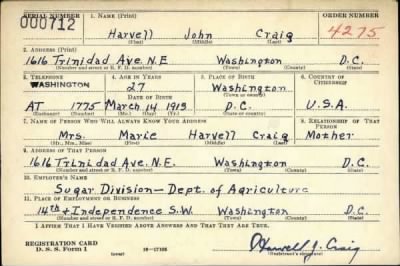 SERIAL NUMBER 1. NAME (Print) ORDER NUMBER
000712 Harvell John Craig 4275
(First) (Middle) (Last)
2. ADDRESS (Print)
1616 Trinidad Ave. N.E. Washington D.C.
(Number and street or R. F. D. number) (Town) (County) (State)
3. TELEPHONE 4. AGE IN YEARS 5. PLACE OF BIRTH 6. COUNTRY OF CITIZENSHIP
WASHINGTON 27 Washington
DATE OF BIRTH (Town or county)
AT 1775 March 14 1913 D.C. U.S.A.
(Exchange) (Number) (Mo.) (Day) (Yr.) (State or country)
7. NAME OF PERSON WHO WILL ALWAYS KNOW YOUR ADDRESS 8. RELATIONSHIP OF THAT PERSON
Mrs. Marie Harvell Craig Mother
(Mr., Mrs., Miss) (First) (Middle) (Last)
9. ADDRESS OF THAT PERSON
1616 Trinidad Ave. N.E. Washington D.C.
(Number and street or R. F. D. number) (Town) (County) (State)
10. EMPLOYER'S NAME
Sugar Division—Dept. of Agriculture
11. PLACE OF EMPLOYMENT OR BUSINESS
14th + Independence S.W. Washington D.C.
(Number and street or R. F. D. number) (Town) (County) (State)
I AFFIRM THAT I HAVE VERIFIED ABOVE ANSWERS AND THAT THEY ARE TRUE.
REGISTRATION CARD
D. S. S. Form 1 (over) 16—17105
Harvell J. Craig
(Registrant's signature)